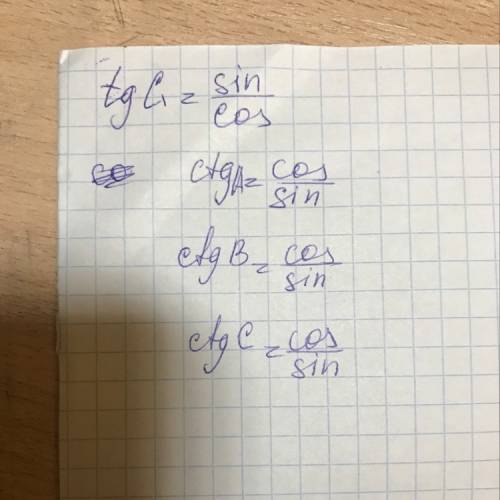 tg C₁ = sin/cos
ctg A = cos/sin
ctg B = cos/sin
ctg C = cos/sin